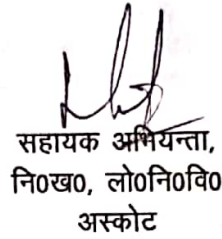 सहायक अभियन्ता,
नि0ख0, लो0नि0वि0
अस्कोट